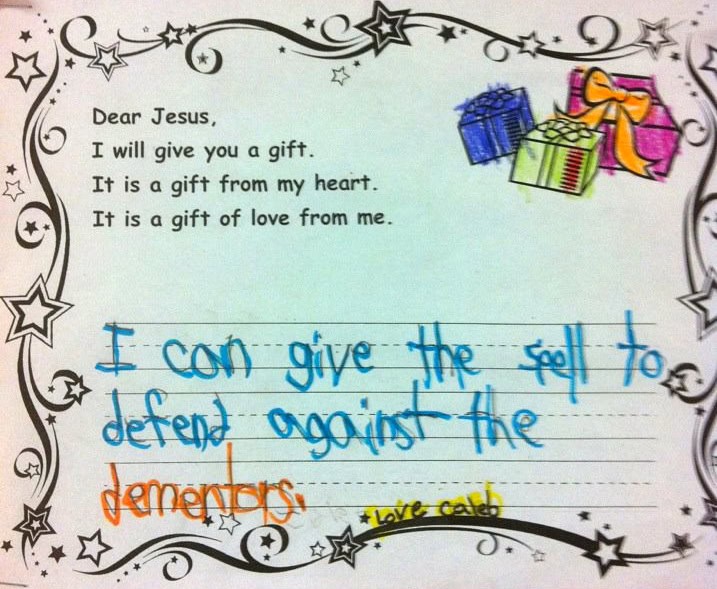 Dear Jesus,
I will give you a gift.
It is a gift from my heart.
It is a gift of love from me.
I can give the spell to
defend against the
dementors.
Love caleb